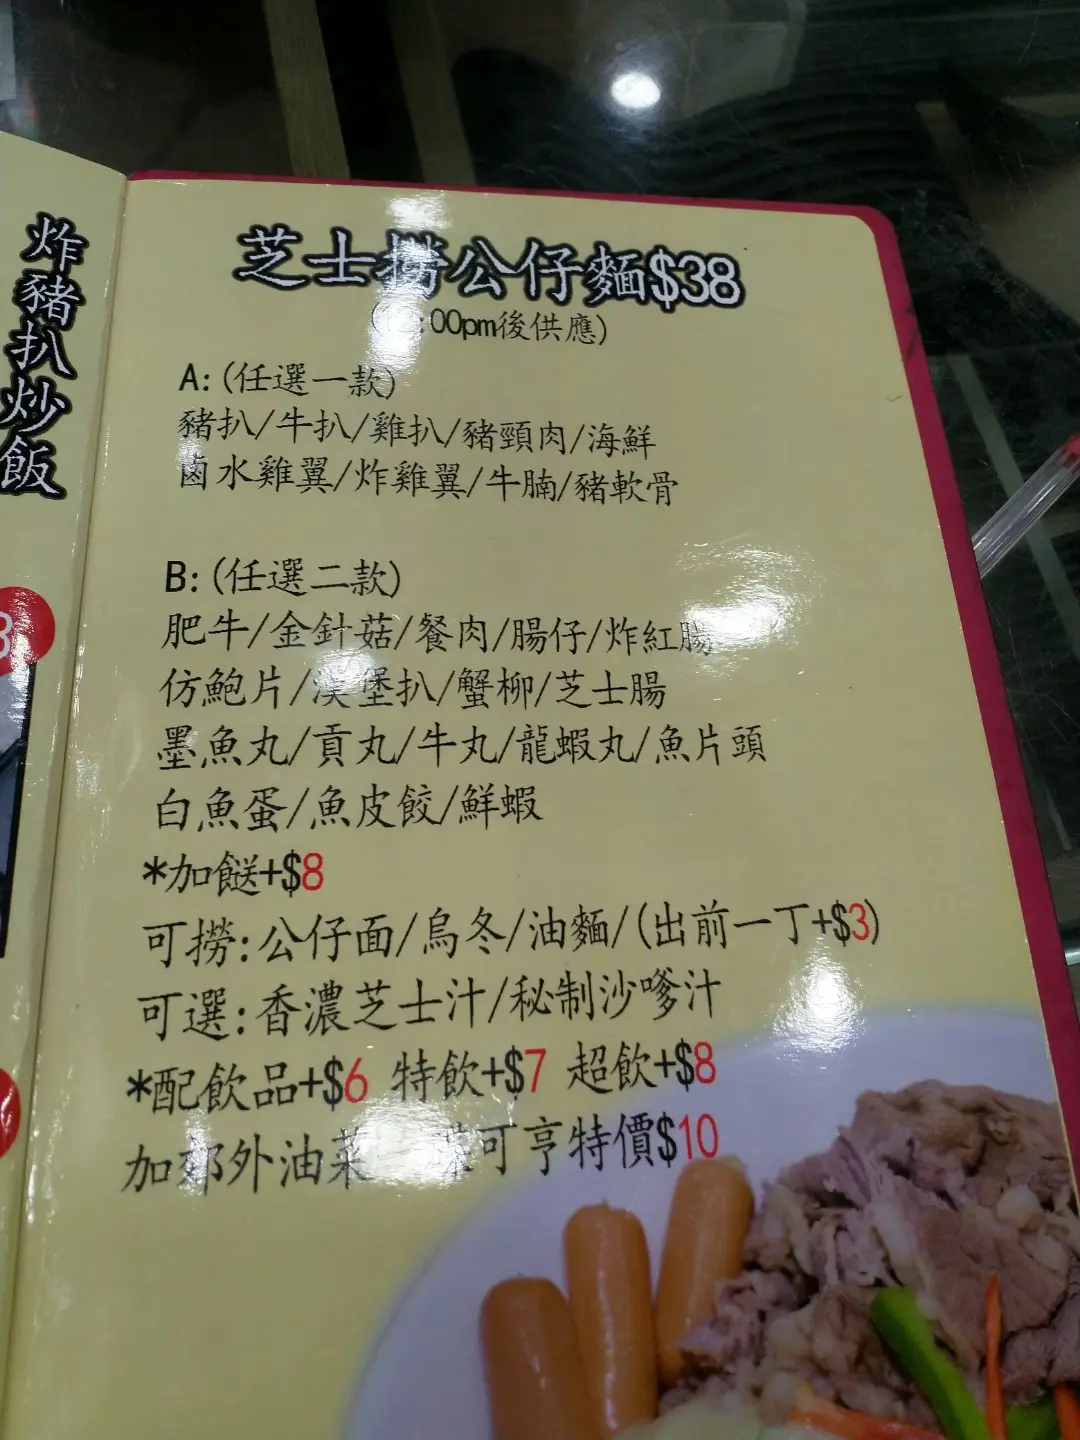 炸豬扒炒飯
芝士撈公仔麵$38
:00pm後供應)
A: (任選一款)
豬扒/牛扒/雞扒/豬頸肉/海鮮
鹵水雞翼/炸雞翼/牛腩/豬軟骨
B: (任選二款)
肥牛/金針菇/餐肉/腸仔/炸紅腸
仿鮑片/漢堡扒/蟹柳/芝士腸
墨魚丸/貢丸/牛丸/龍蝦丸/魚片頭
白魚蛋/魚皮餃/鮮蝦
*加餸+$8
可撈:公仔面/烏冬/油麵/(出前一丁+$3)
可選:香濃芝士汁/秘制沙嗲汁
*配飲品+$6 特飲+$7 超飲+$8
加郊外油菜 可亨特價$10